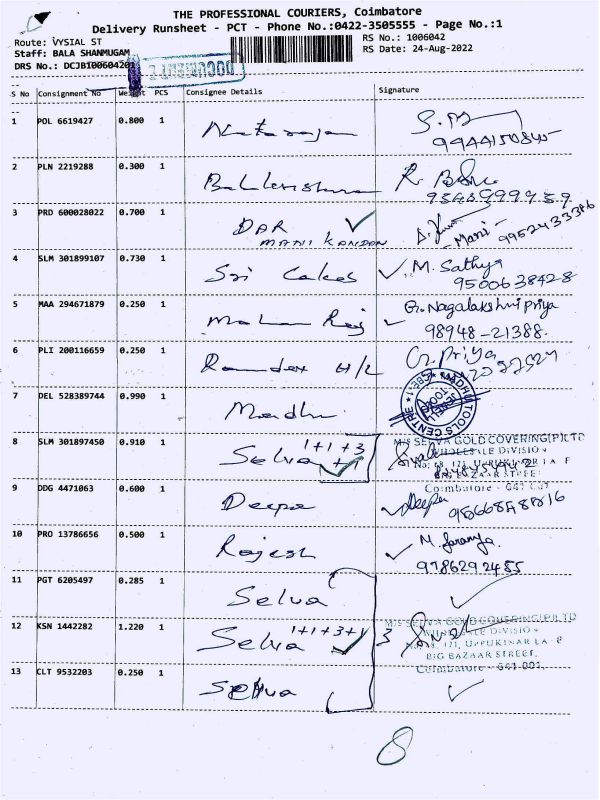 THE PROFESSIONAL COURIERS, Coimbatore
Delivery Runsheet - PCT - Phone No.:0422-3505555 - Page No.:1
Route: VYSIAL ST
RS No.: 1006042
Staff: BALA SHANMUGAM
RS Date: 24-Aug-2022
DRS No.: DCJB100604201
DOCUMENT
S No Consignment No Weight PCS Consignee Details Signature
1 POL 6619427 0.800 1 Natarajan
2 PLN 2219288 0.300 1
3 PRD 600028022 0.700 1 DAR
MANI KANDAN Mani 9952433386
4 SLM 301899107 0.730 1 Sri Cakes M. Sathya
9500638428
5 MAA 294671879 0.250 1 Mohan Raj G. Nagalakshmi Priya
98948-21388.
6 PLI 200116659 0.250 1 H/L G. Priya
7 DEL 528389744 0.990 1 Madhu
MADHU TOOLS CENTRE
8 SLM 301897450 0.910 1 Selva 1+1+3
+1
M/S SELVA GOLD COVERING(P)LTD
WHOLESALE DIVISION
BIG BAZAAR STREET
Coimbatore - 641 001
9 DDG 4471063 0.600 1 Deepa Deepa
10 PRO 13786656 0.500 1 Rajesh M. Saranya.
9786292485
11 PGT 6205497 0.285 1 Selva
12 KSN 1442282 1.220 1 Selva 1+1+3+1 3
M/S SELVA GOLD COVERING(P)LTD
WHOLESALE DIVISION
BIG BAZAAR STREET,
Coimbatore - 641 001.
13 CLT 9532203 0.250 1 Selva
8